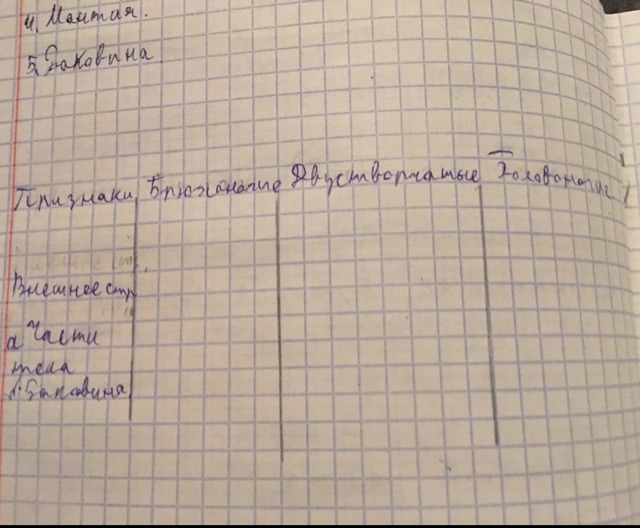 4. Мантия.
5. Раковина
Признаки Брюхоногие Двустворчатые Головоногие
Внешнее стр
а Части
тела
б. Раковина